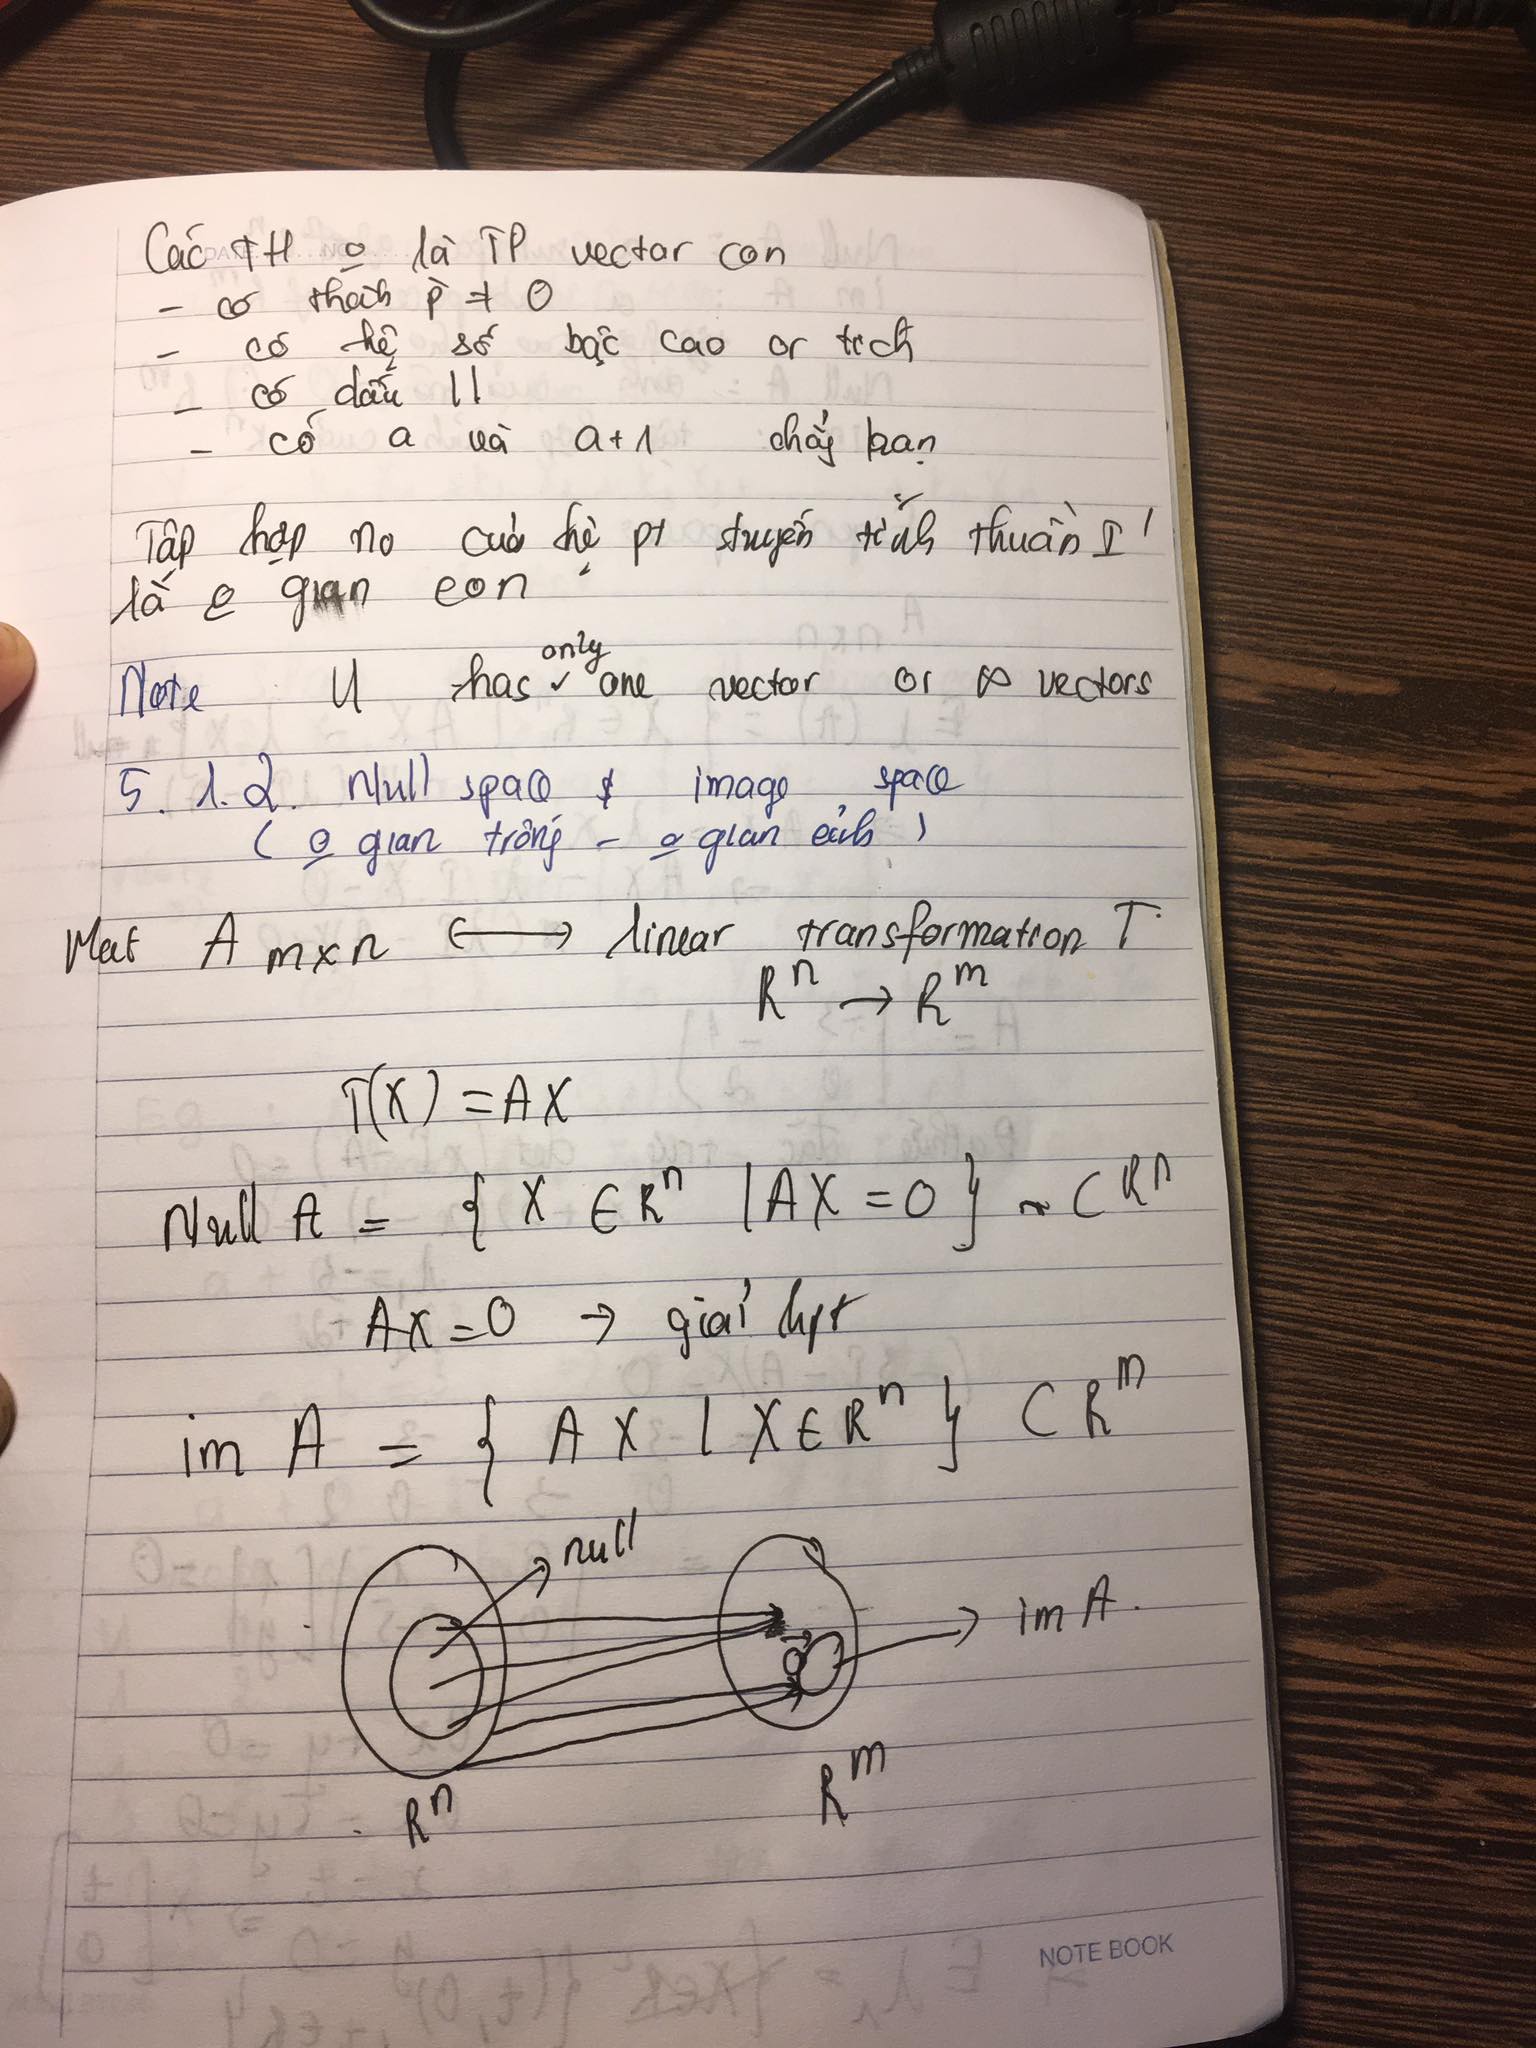 Các TH o là TP vectar con
- có thành p ≠ 0
- có hệ số bậc cao or tích
- có dấu | |
- có a và a+1 chẳng hạn
Tập hợp no của hệ pt tuyến tính thuần I'
là o gian con
Note U has only one vector or ∞ vectors
5.1.2. Null space & image space
(o gian trống - o gian ảnh)
Mat A m×n ⟷ linear transformation T
R^n → R^m
T(X) = AX
Null A = { X ∈ R^n | AX = 0 } ~ ⊂ R^n
AX = 0 → giải hpt
im A = { AX | X ∈ R^n } ⊂ R^m
null
im A.
0
R^n R^m
NOTE BOOK